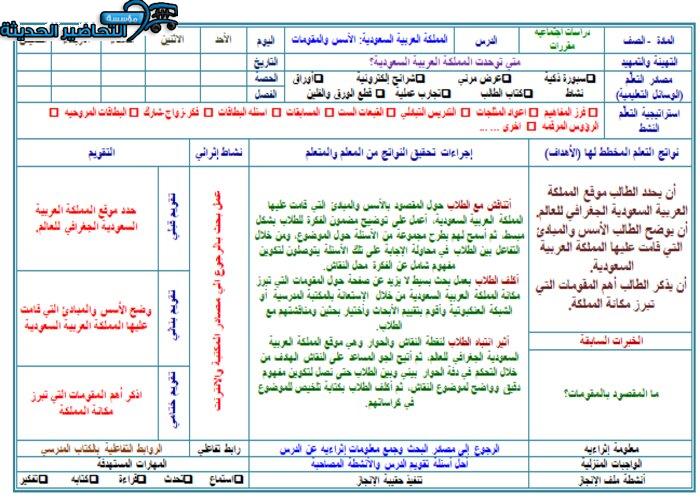 مؤسسة
التحاضير الحديثة
المادة - الصف
دراسات اجتماعيه
مقررات
الدرس
المملكة العربية السعودية: الأسس والمقومات
اليوم
الأحد
الاثنين
التهيئة والتمهيد
متى توحدت المملكة العربية السعودية؟
التاريخ
مصادر التعلم
(الوسائل التعليمية)
سبورة ذكية
عرض مرئي
شرائح إلكترونية
أوراق
نشاط
كتاب الطالب
تجارب عملية
قطع الورق والفلين
الحصة
الفصل
استراتيجية التعلم
النشط
فرز المفاهيم
اعواد المثلجات
التدريس التبادلي
القبعات الست
المسابقات
اسئله البطاقات
فكر-زواج-شارك
البطاقات المروحيه
الرؤوس المرقمه
اخرى ... ...
نواتج التعلم المخطط لها (الأهداف)
إجراءات تحقيق النواتج من المعلم والمتعلم
نشاط إثرائي
التقويم
أن يحدد الطالب موقع المملكة
العربية السعودية الجغرافي للعالم.
أن يوضح الطالب الأسس والمبادئ
التي قامت عليها المملكة العربية
السعودية.
أن يذكر الطالب أهم المقومات التي
تبرز مكانة المملكة.
الخبرات السابقة
ما المقصود بالمقومات؟
أتناقش مع الطلاب حول المقصود بالأسس والمبادئ التي قامت عليها
المملكة العربية السعودية، أعمل على توضيح مضمون الفكرة للطلاب بشكل
مبسط، ثم أسمح لهم بطرح مجموعة من الأسئلة حول الموضوع، ومن خلال
التفاعل بين الطلاب في محاولة الإجابة على تلك الأسئلة يتوصلون لتكوين
مفهوم شامل عن الفكرة محل النقاش.
أكلف الطلاب بعمل بحث بسيط لا يزيد عن صفحة حول المقومات التي تبرز
مكانة المملكة العربية السعودية من خلال الإستعانة بالمكتبة المدرسية أو
الشبكة العنكبوتية وأقوم بتقييم الأبحاث وأختيار بحثين ومناقشتهم مع
الطلاب.
أثير انتباه الطلاب لنقطة النقاش والحوار وهي موقع المملكة العربية
السعودية الجغرافي للعالم. ثم أتيح الجو المساعد على النقاش الهدف من
خلال التحكم في دفة الحوار بيني وبين الطلاب حتى نصل لتكوين مفهوم
دقيق وواضح لموضوع النقاش، ثم أكلف الطلاب بكتابة تلخيص للموضوع
في كراساتهم.
عمل بحث بالرجوع الي مصادر المكتبة والانترنت
تقويم قبلي
حدد موقع المملكة العربية
السعودية الجغرافي للعالم.
تقويم بنائي
وضح الأسس والمبادئ التي قامت
عليها المملكة العربية السعودية
تقويم ختامي
اذكر أهم المقومات التي تبرز
مكانة المملكة
معلومة إثراءيه
الرجوع إلى مصادر البحث وجمع معلومات إثراءيه عن الدرس
رابط تفاعلي
الروابط التفاعلية بالكتاب المدرسي
الواجبات المنزلية
أحل أسئلة تقويم الدرس والأنشطة المصاحبه
المهارات المستهدفة
أنشطة ملف الإنجاز
تنفيذ حقيبة الإنجاز
استماع
تحدث
قراءة
كتابه
تفكير